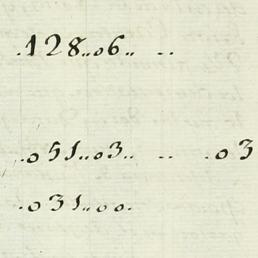 .128..06.. ..
.051..03.. .. .03
.031..00.